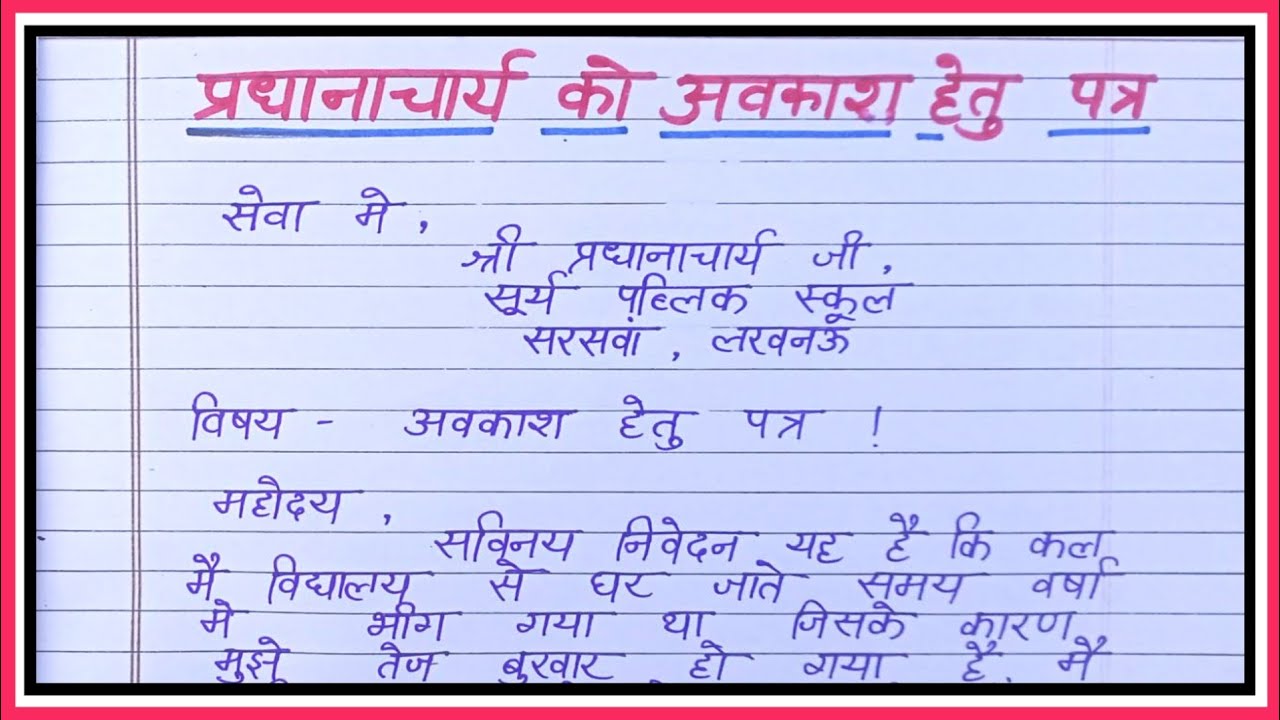 प्रधानाचार्य को अवकाश हेतु पत्र
सेवा मे ,
श्री प्रधानाचार्य जी ,
सूर्य पब्लिक स्कूल
सरसवां , लखनऊ
विषय - अवकाश हेतु पत्र !
महोदय ,
सविनय निवेदन यह है कि कल
मै विद्यालय से घर जाते समय वर्षा
मे भीग गया था जिसके कारण
मुझे तेज बुखार हो गया है मै